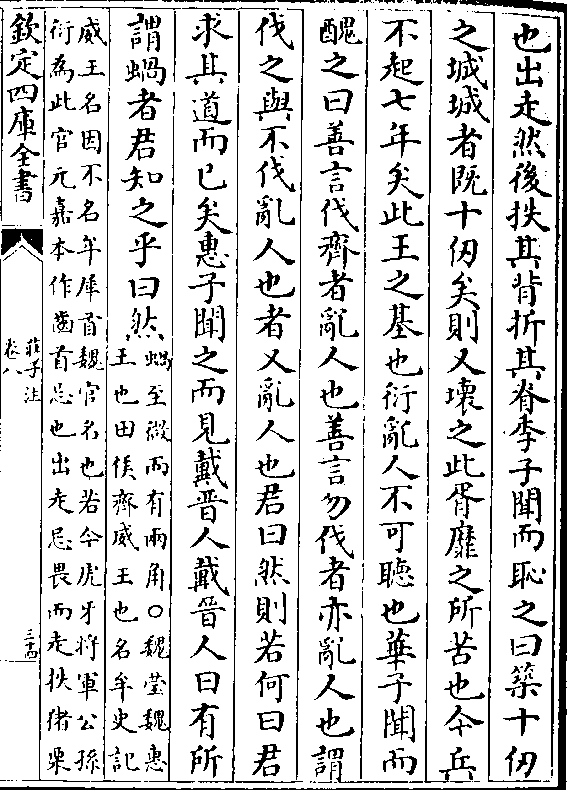 也出走然後抶其背折其脊季子聞而恥之曰築十仞
之城城者既十仞矣則又壞之此胥靡之所苦也今兵
不起七年矣此王之基也衍亂人不可聽也華子聞而
醜之曰善言伐齊者亂人也善言勿伐者亦亂人也謂
伐之與不伐亂人也者又亂人也君曰然則若何曰君
求其道而已矣惠子聞之而見戴晉人戴晉人曰有所
謂蝸者君知之乎曰然
蝸至微而有兩角○魏瑩魏惠
王也田侯齊威王也名牟史記
威王名因不名牟犀首魏官名也若今虎牙將軍公孫
衍為此官元嘉本作齒首忌也出走忌畏而走抶猪栗
欽定四庫全書
莊子注
卷八